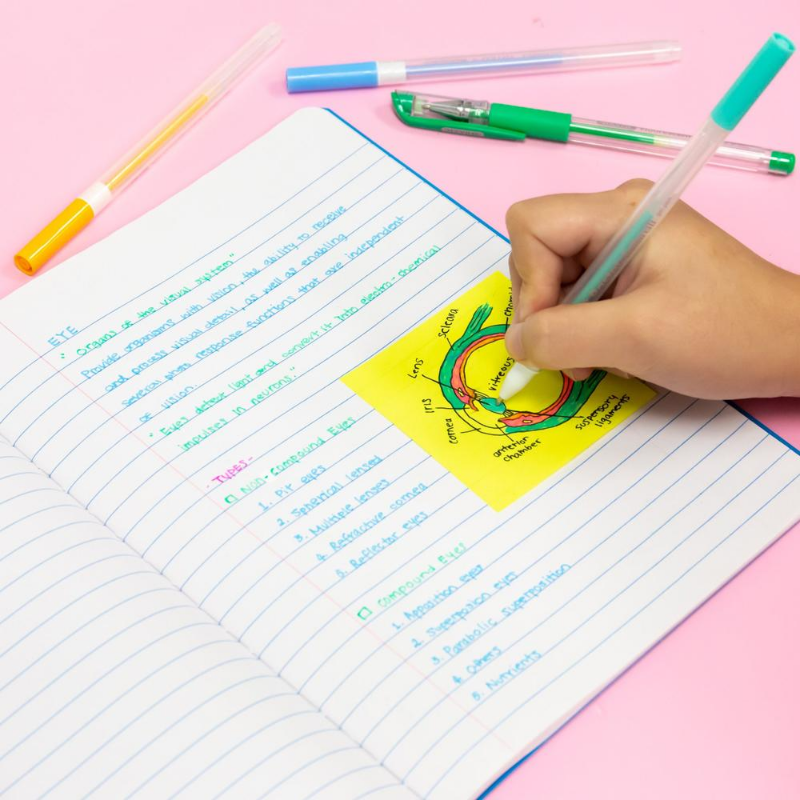 EYE
" Organs of the visual system"
Provide organisms with vision, the ability to receive
and process visual detail, as well as enabling
several photo response functions that are independent
of vision.
" Eyes detect light and convert it into electro-chemical
impulses in neurons"
- TYPES -
Non-Compound Eyes
1. Pit eyes
2. Spherical lensed
3. Multiple lenses
4. Refractive cornea
5. Reflector eyes
Compound Eyes
1. Apposition eyes
2. Superposition eyes
3. Parabolic superposition
4. Others
5. Nutrients
Lens
Iris
cornea
vitreous
anterior
chamber
suspensory
ligaments